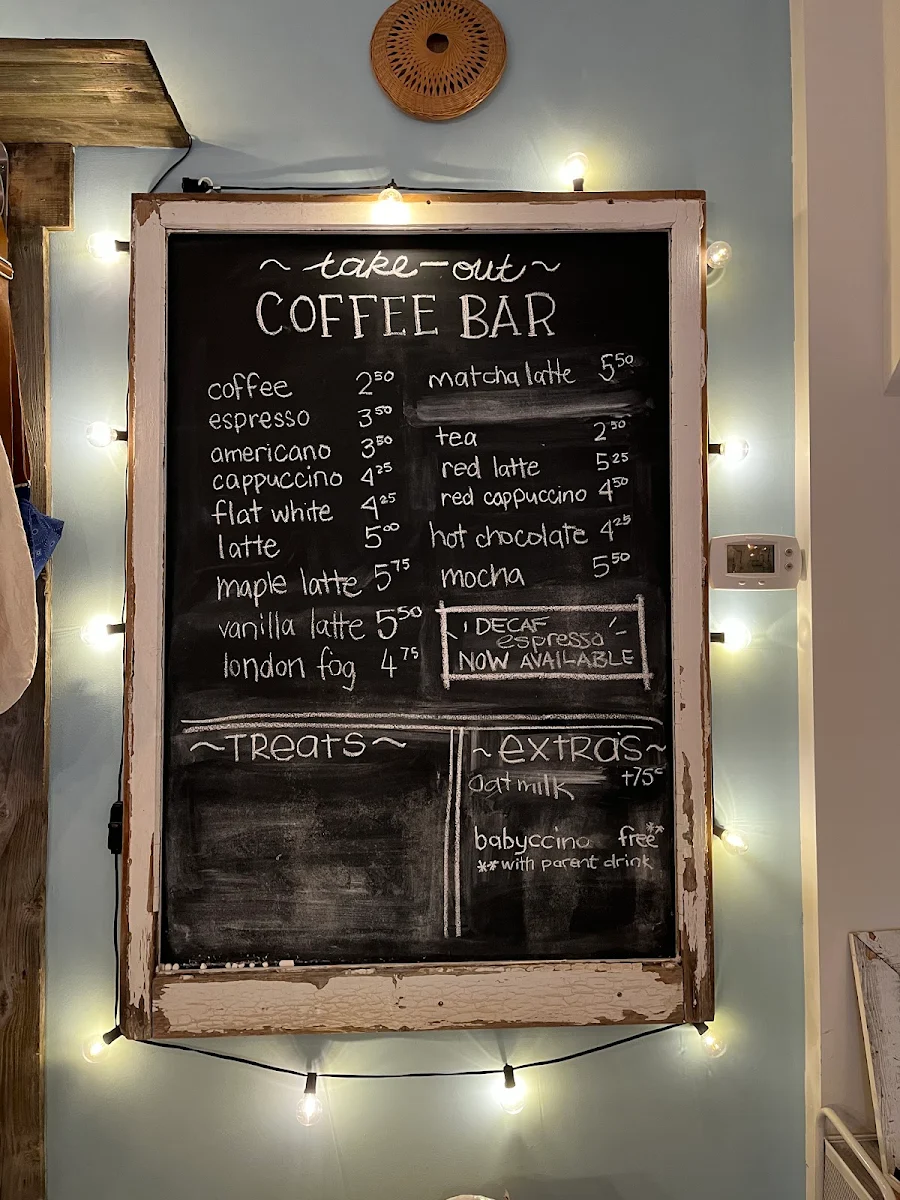 ~ take-out ~
COFFEE BAR
coffee 2⁵⁰
espresso 3⁵⁰
americano 3⁵⁰
cappuccino 4²⁵
flat white 4²⁵
latte 5⁰⁰
maple latte 5⁷⁵
vanilla latte 5⁵⁰
london fog 4⁷⁵
matcha latte 5⁵⁰
tea 2⁵⁰
red latte 5²⁵
red cappuccino 4⁵⁰
hot chocolate 4²⁵
mocha 5⁵⁰
DECAF
espresso
NOW AVAILABLE
~TReats~
~extras~
oat milk +75¢
babyccino free**
**with parent drink